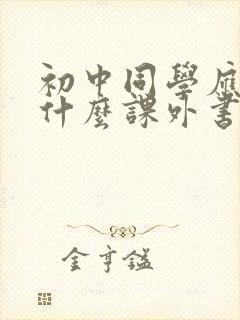 初中同學應
什麼課外書
金亨鎰